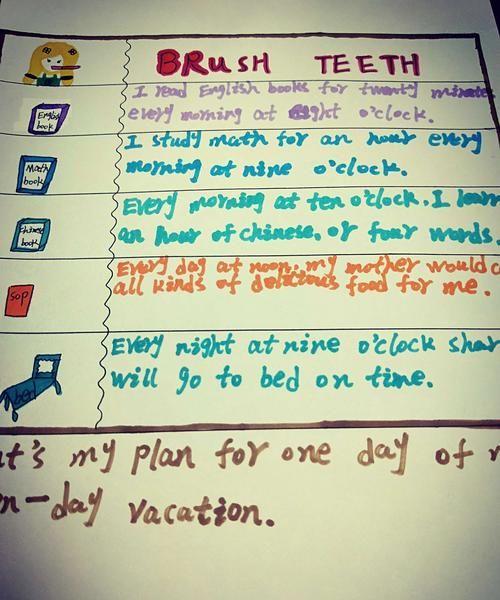 BRUSH TEETH
I read English books for twenty minutes
English book
every morning at eight o'clock.
I study math for an hour every
Math book
morning at nine o'clock.
Every morning at ten o'clock. I learn
Chinese book
an hour of chinese. or four words.
Every day at noon. my mother would
sop
all kinds of delicious food for me.
Every night at nine o'clock
bed
will go to bed on time.
my plan for one day of
day vacation.